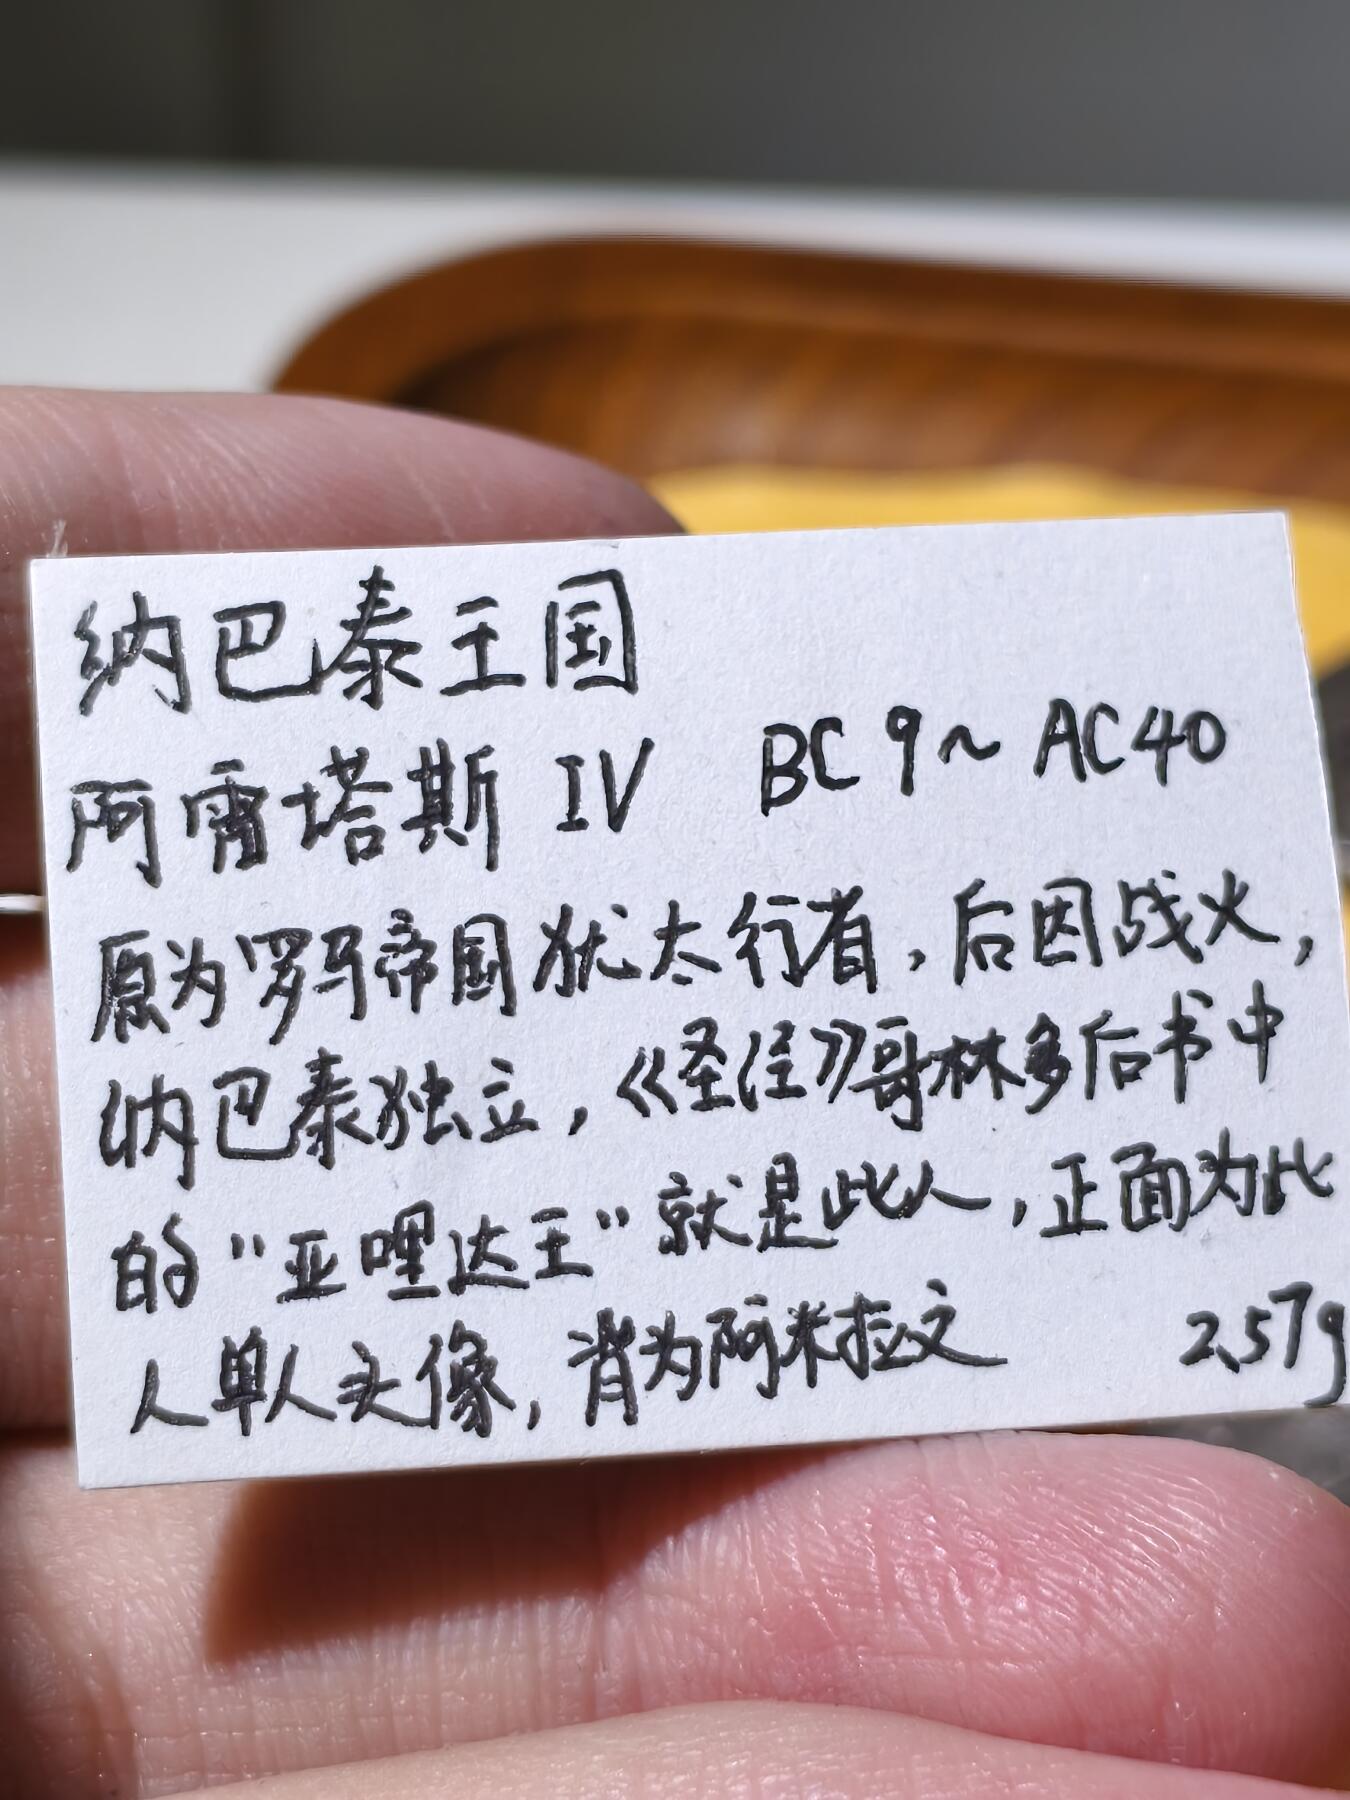 纳巴泰王国
阿雷塔斯 IV BC 9~AC40
原为罗马帝国犹太行省,后因战火,
纳巴泰独立,《圣经》哥林多后书中
的"亚哩达王"就是此人,正面为此
人单人头像,背为阿米拉文 2.57g